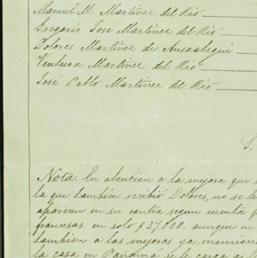 Manuel M. Martinez del Rio
Gregorio José Martinez del Rio
Dolores Martinez de Ansoategui
Ventura Martinez del Rio
José Pablo Martinez del Rio
S.
Nota. En atencion a la mejora que
la que tambien recibió Dolores, no se le
aparecen en su contra segun cuenta
francesas en solo $37.000. aunque en
tambien a las mejoras ya menciona
la casa en Panamá y le carga